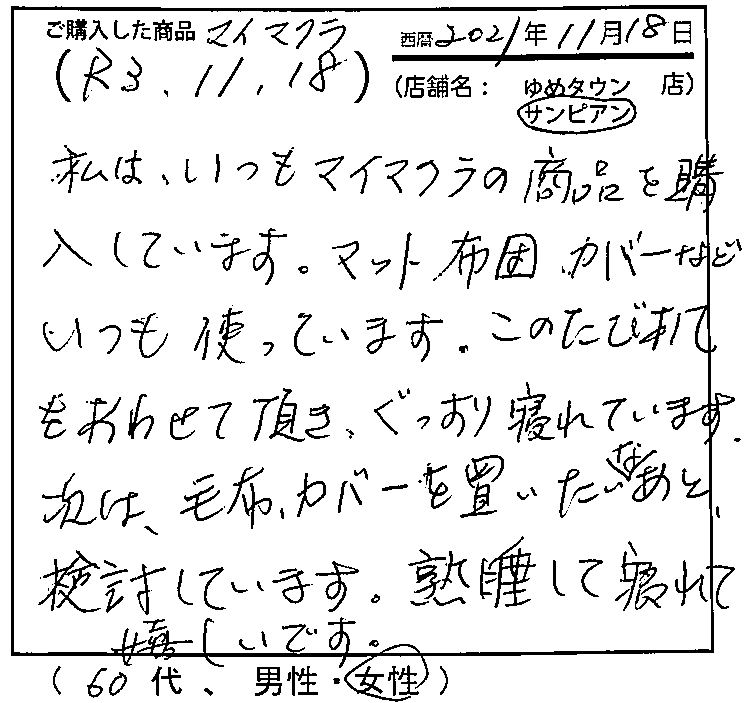 ご購入した商品 マイマクラ 西暦2021年11月18日
(R3.11.18) (店舗名: ゆめタウン 店)
サンピアン
私は、いつもマイマクラの商品を購
入しています。マット布団、カバーなど
いつも使っています。このたび
をあわせて頂き、ぐっすり寝れています。
次は、毛布、カバーを買いたいなあと、
検討しています。熟睡して寝れて
嬉しいです。
(60代、男性・女性)